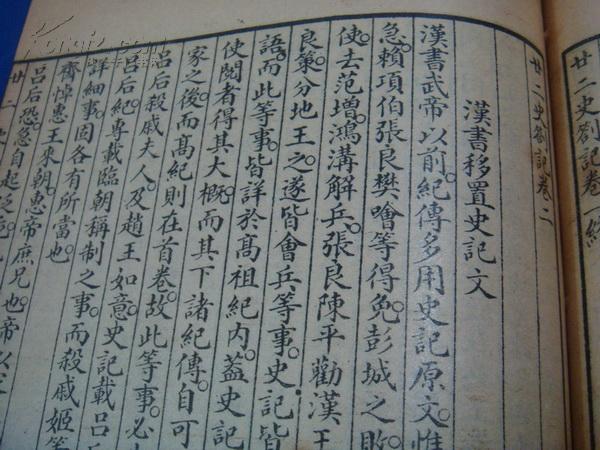 廿二史劄記卷一終
廿二史劄記卷二
漢書移置史記文
漢書武帝以前紀傳多用史記原文惟
急賴項伯張良樊噲等得免彭城之敗
使去范增鴻溝解兵張良陳平勸漢王
良策分地王之遂皆會兵等事史記皆
語而此等事皆詳於高祖紀內蓋史記
使閱者得其大概而其下諸紀傳自可
家之後而高紀則在首卷故此等事必
呂后殺戚夫人及趙王如意史記載呂
呂后紀專載臨朝稱制之事而殺戚姬等
詳細事固各有所當也
齊悼惠王來朝惠帝庶兄也帝以
呂后恐急自起泛
廿二史